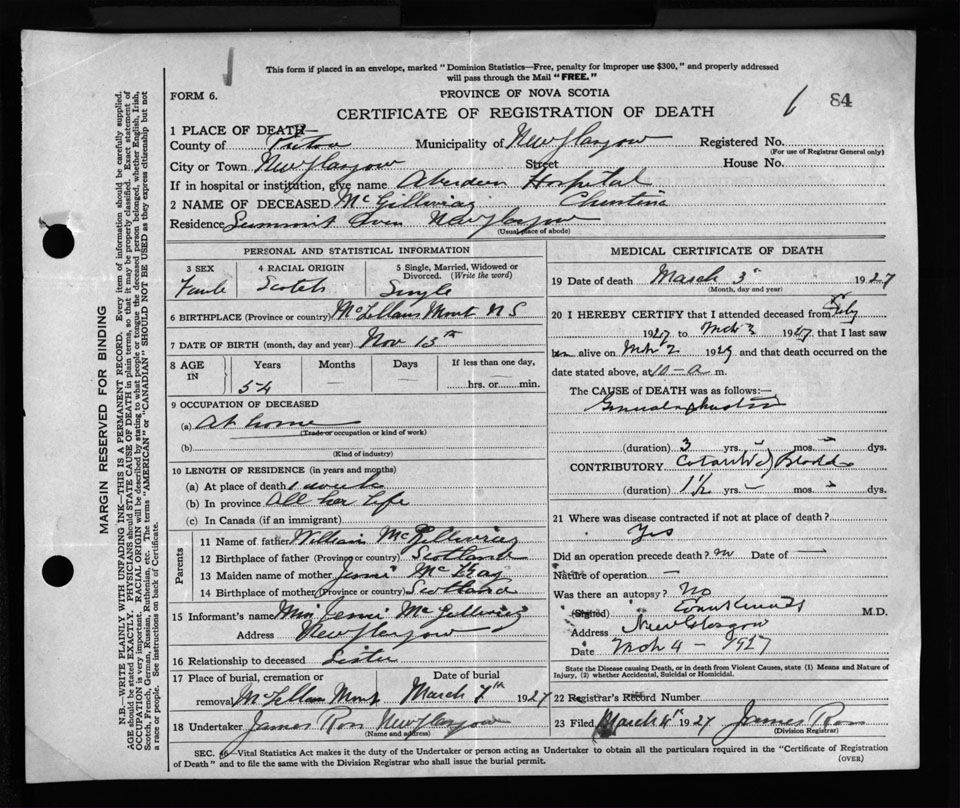 This form if placed in an envelope, marked "Dominion Statistics—Free, penalty for improper use $300," and properly addressed
will pass through the Mail "FREE."
FORM 6.
PROVINCE OF NOVA SCOTIA
CERTIFICATE OF REGISTRATION OF DEATH
6 84
1 PLACE OF DEATH—
County of Pictou Municipality of New Glasgow Registered No.
(For use of Registrar General only)
City or Town New Glasgow Street House No.
If in hospital or institution, give name Aberdeen Hospital
2 NAME OF DECEASED McGillivray Christina
Residence Summit Aven New Glasgow
(Usual place of abode)
PERSONAL AND STATISTICAL INFORMATION
3 SEX 4 RACIAL ORIGIN 5 Single, Married, Widowed or
Divorced. (Write the word)
Female Scotch Single
6 BIRTHPLACE (Province or country) McLellans Mount N S
7 DATE OF BIRTH (month, day and year) Nov 15th
8 AGE IN Years Months Days If less than one day,
54 — — hrs. or min.
9 OCCUPATION OF DECEASED
(a) At home
(Trade or occupation or kind of work)
(b)
(Kind of industry)
10 LENGTH OF RESIDENCE (in years and months)
(a) At place of death 1 week
(b) In province All her Life
(c) In Canada (if an immigrant)
Parents
11 Name of father William McGillivray
12 Birthplace of father (Province or country) Scotland
13 Maiden name of mother Jennie McKay
14 Birthplace of mother (Province or country) Scotland
15 Informant's name Miss Jennie McGillivray
Address New Glasgow
16 Relationship to deceased Sister
17 Place of burial, cremation or Date of burial
removal McLellan Mount March 7th 1927
18 Undertaker James Ross New Glasgow
(Name and address)
MEDICAL CERTIFICATE OF DEATH
19 Date of death March 3" 1927
(Month, day and year)
20 I HEREBY CERTIFY that I attended deceased from Feby
1927 to Mch 3 1927, that I last saw
alive on Mch 2 1927 and that death occurred on
date stated above, at 10-a m.
The CAUSE of DEATH was as follows:—
(duration) 3 yrs. mos. dys.
CONTRIBUTORY
(duration) 1½ yrs. mos. dys.
21 Where was disease contracted if not at place of death?
Yes
Did an operation precede death? no Date of —
Nature of operation —
Was there an autopsy? No
(Signed) M.D.
Address New Glasgow
Date Mch 4 - 1927
State the Disease causing Death, or in death from Violent Causes, state (1) Means and Nature of
Injury, (2) whether Accidental, Suicidal or Homicidal.
22 Registrar's Record Number
23 Filed March 4" 1927 James Ross
(Division Registrar)
SEC. 46—Vital Statistics Act makes it the duty of the Undertaker or person acting as Undertaker to obtain all the particulars required in the "Certificate of Registration
of Death" and to file the same with the Division Registrar who shall issue the burial permit.
(OVER)
MARGIN RESERVED FOR BINDING
N.B.—WRITE PLAINLY WITH UNFADING INK—THIS IS A PERMANENT RECORD. Every item of information should be carefully supplied.
AGE should be stated EXACTLY. PHYSICIANS should STATE CAUSE OF DEATH in plain terms, so that it may be properly classified. Exact statement of
OCCUPATION is very important. RACIAL ORIGIN will be described by stating to what people or tongue the deceased person belonged, whether English, Irish,
Scotch, French, German, Russian, Ruthenian, etc. The terms "AMERICAN" or "CANADIAN" SHOULD NOT BE USED as they express citizenship but not
a race or people. See instructions on back of Certificate.